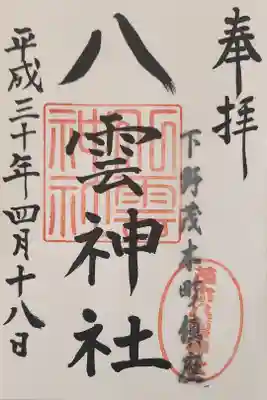 奉拝
下野茂木町鎮座
八雲神社
八雲神社
平成三十年四月十八日